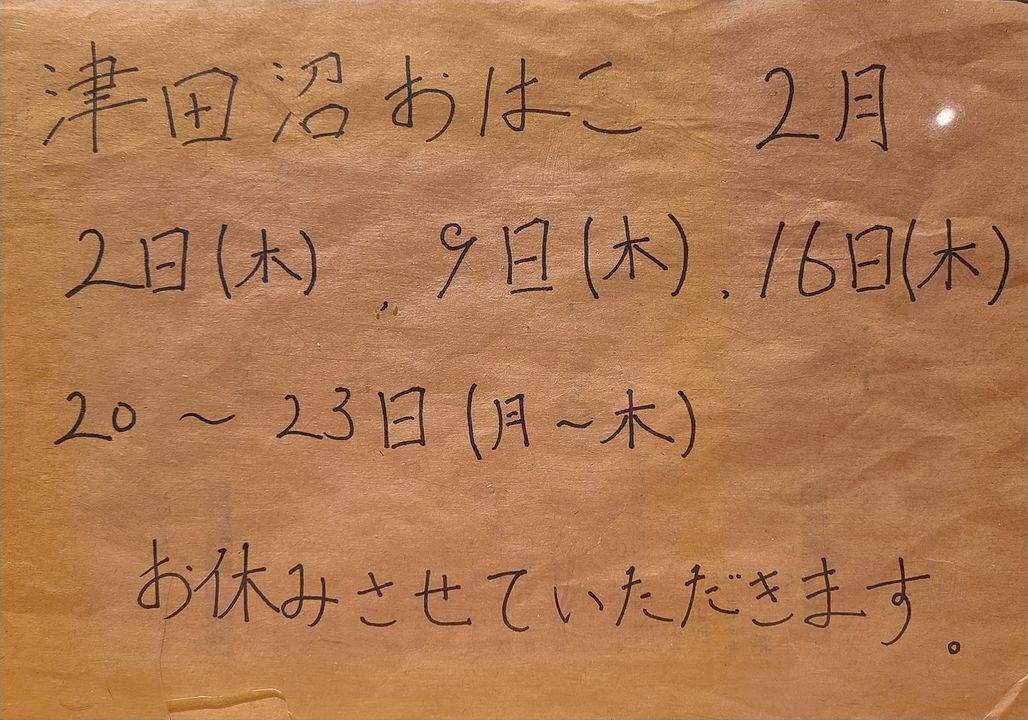 津田沼おはこ 2月
2日(木), 9日(木), 16日(木)
20～23日(月～木)
お休みさせていただきます。